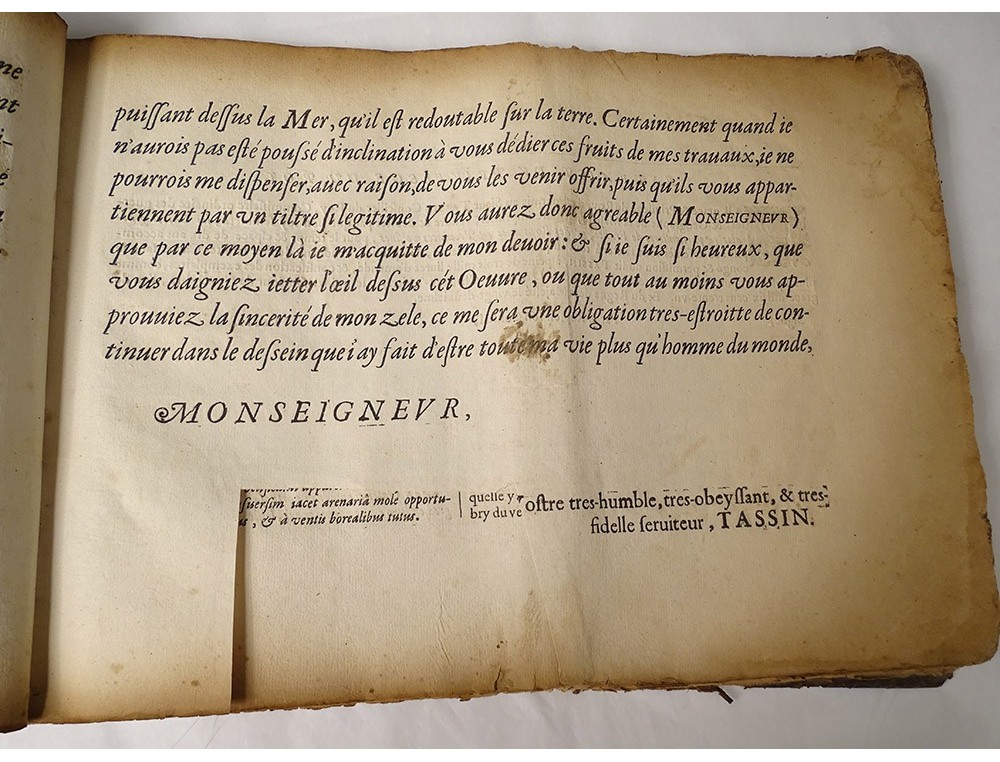 ne
nt
i-
é
puiſſant deſſus la Mer, qu'il eſt redoutable ſur la terre. Certainement quand ie
n'aurois pas eſté pouſſé d'inclination à vous dédier ces fruits de mes trauaux, ie ne
pourrois me diſpenſer, auec raiſon, de vous les venir offrir, puis qu'ils vous appar-
tiennent par vn tiltre ſi legitime. Vous aurez donc agreable ( MONSEIGNEVR )
que par ce moyen là ie m'acquitte de mon deuoir : & ſi ie ſuis ſi heureux, que
vous daigniez ietter l'œil deſſus cét Oeuure, ou que tout au moins vous ap-
prouuiez la ſincerité de mon zele, ce me ſera vne obligation tres-eſtroitte de con-
tinuer dans le deſſein que i'ay fait d'eſtre toute ma vie plus qu'homme du monde,
MONSEIGNEVR,
ſuerſim iacet arenariâ mole opportu-
s, & à ventis borealibus tutus.
quelle y
bry du ve
oſtre tres-humble, tres-obeyſſant, & tres-
fidelle ſeruiteur, TASSIN.